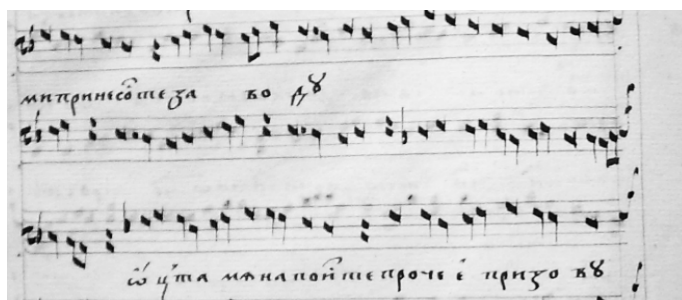 ми принесоⷭте за во дꙋ
ѡ цта мѧ напоиⷭте проче е призо вꙋ